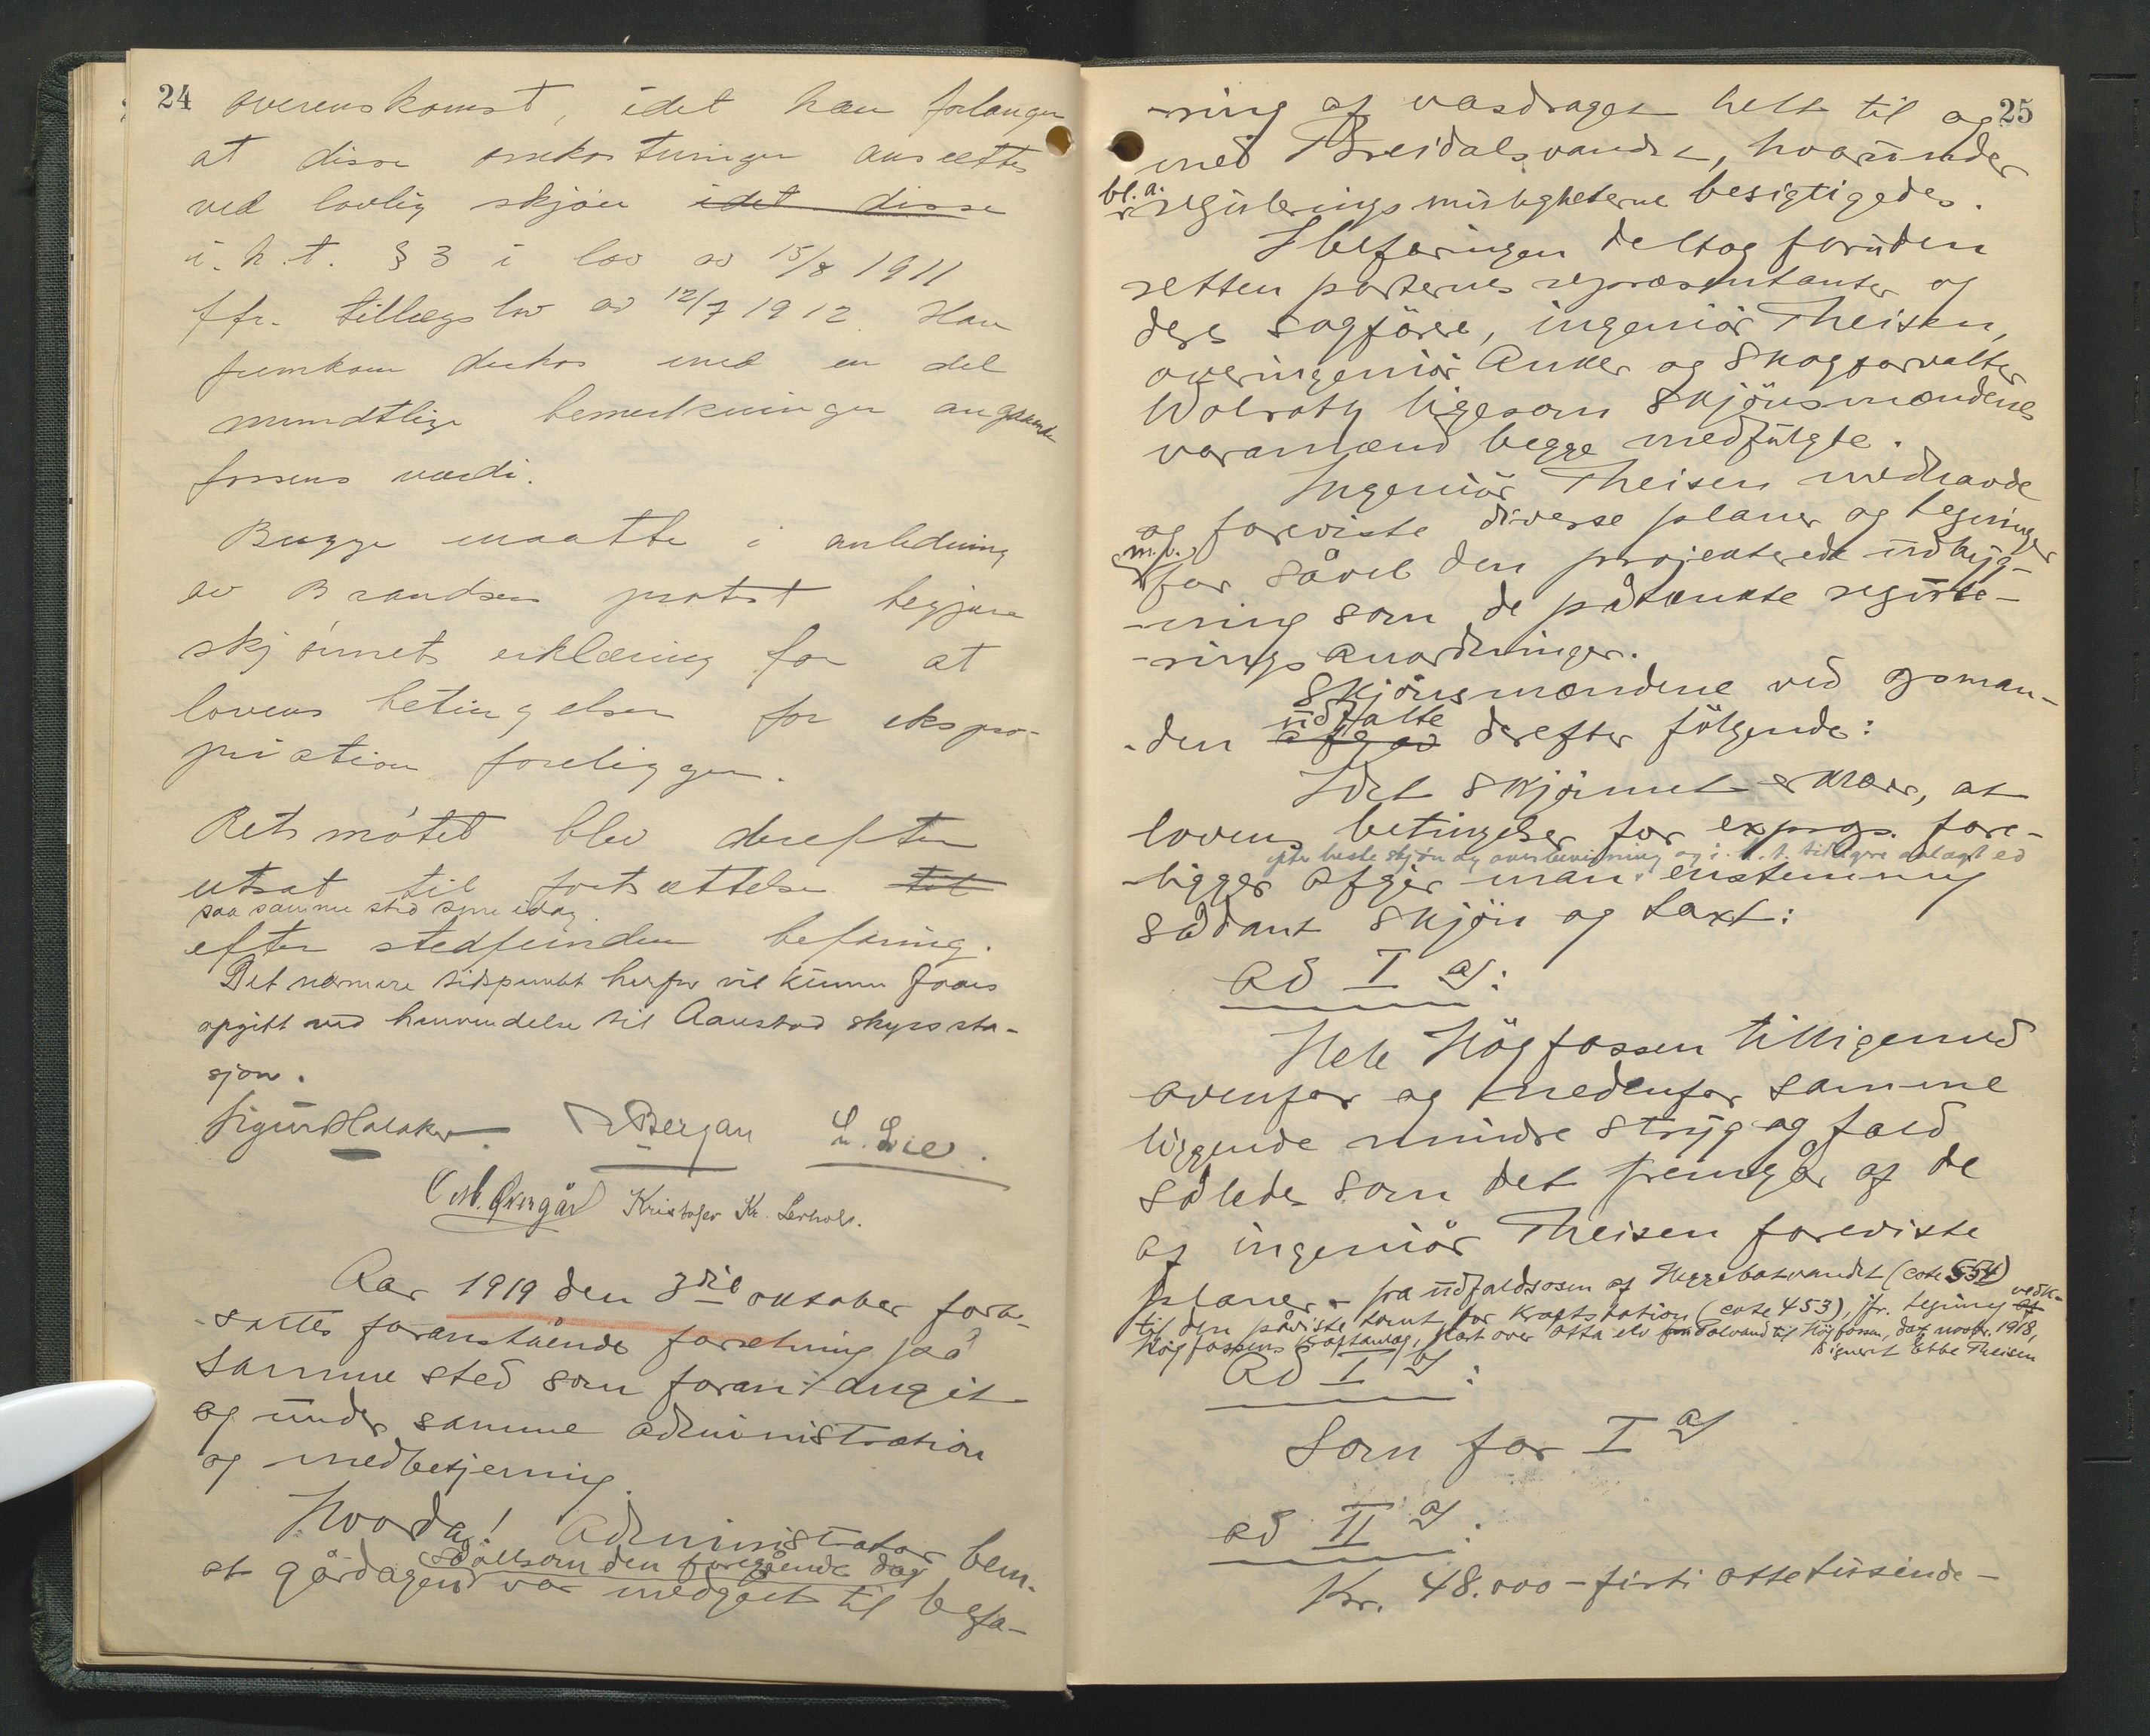 24
overenskomst, idet han forlanger
at disse omkostninger ansættes
ved lovlig skjøn idet disse
i. h. t. § 3 i lov av 15/8 1911
jfr. tillægslov av 12/7 1912. Han
fremkom derhos med en del
mundtlige bemerkninger angaaende
fossens værdi.
Bugge maatte i anledning
av Brandsens protest begjære
skjønnets erklæring for at
lovens betingelser for ekspro-
priation foreligger.
Retsmøtet blev derefter
utsat til fortsættelse til
paa samme sted som idag
efter stedfunden befaring.
Det nærmere tidspunkt herfor vil kunne faaes
opgitt ved henvendelse til Aanstad skyssta-
sjon.
Sigurd Bergan L. Lie.
O. M. Øvergård Kristofer Kr. Lerhol.
Aar 1919 den 3die oktober fort-
-sattes foranstående forretning på
samme sted som foran angit
og under samme administration
og medbetjening.
Hvorda! Administrator bem.
såvelsom den foregående dag
at gårdagen var medgået til befa-
25
-ring af vasdraget helt til og
med Breidalsvandet, hvorunder
bl. a.
reguleringsmulighetene besigtigedes.
I befaringen deltog foruden
retten parternes repræsentanter og
deres sagförere, ingeniör Theisen,
overingeniör Anker og Skogforvalter
Wolrath ligesom Skjönsmændenes
varamænd begge medfulgte.
Ingeniör Theisen medhavde
og foreviste diverse planer og tegninger
m. v.
for såvel den projekterede udbyg-
-ning som de påtænkte regule-
-ringsanordninger.
Skjönsmændene ved opman-
udtalte
-den afgav derefter fölgende:
Idet skjönnet erklærer, at
lovens betingelser for exprop. fore-
efter beste skjøn og overbevisning og i. h. t. tidligere avlagt ed
-ligger afgir man enstemmig
sådant skjön og taxt:
ad I a):
Hele Högfossen tilligemed
ovenfor og nedenfor samme
liggende mindre stryg og fald
således som det fremgår af de
af ingeniör Theisen foreviste
planer - fra udfaldsosen af Heggebotvandet (cote 554)
til den påviste tomt for kraftstation (cote 453), jfr. tegning vedk.
Högfossens kraftanlæg, kart over Otta elv fra Polvand til Högfossen, dat. novbr. 1918,
signert Ebbe Theisen
ad I b):
Som for I a)
ad II a):
Kr. 48.000 - firti ottetusinde -